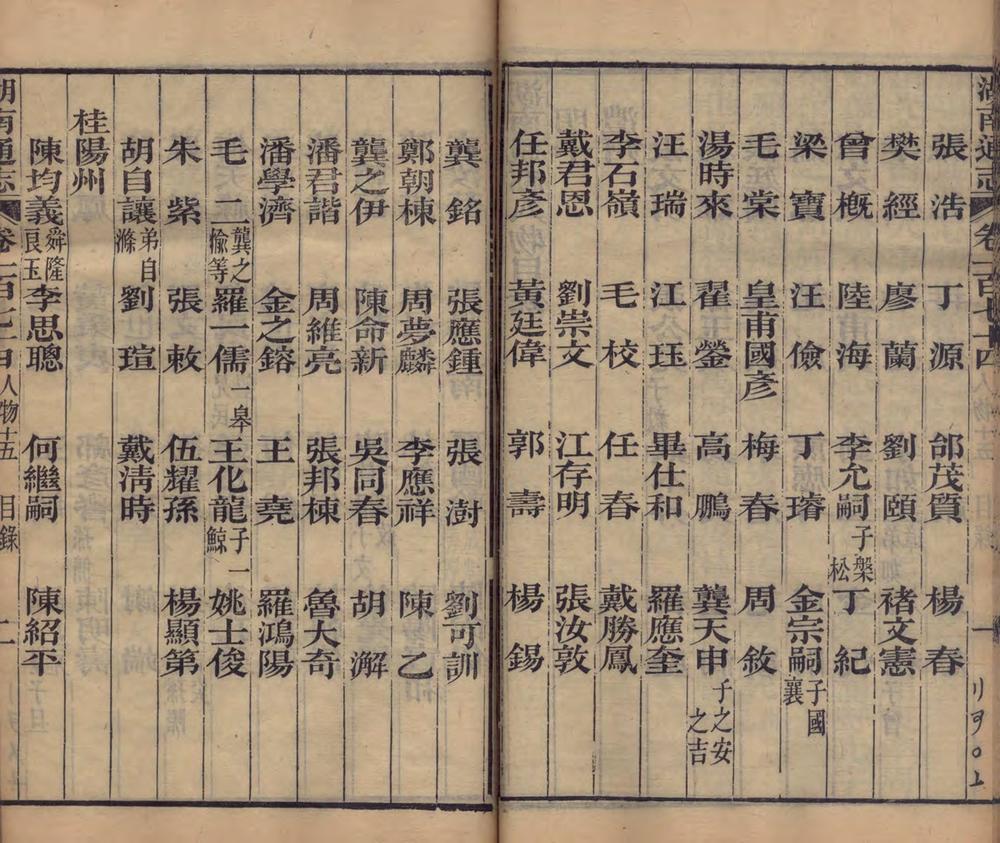 湖南通志 卷一百七十四 人物十五 目錄 一
張浩 丁源 郃茂質 楊春
樊經 廖蘭 劉頤 褚文憲
曾概 陸海 李允嗣子槃松 丁紀
梁寶 汪儉 丁璿 金宗嗣子國襄
毛棠 皇甫國彥 梅春 周敘
湯時來 翟鎣 高鵬 龔天申子之安之吉
汪瑞 江珏 畢仕和 羅應奎
李石嶺 毛校 任春 戴勝鳳
戴君恩 劉崇文 江存明 張汝敦
任邦彥 黃廷偉 郭壽 楊錫
龔銘 張應鍾 張澍 劉可訓
鄭朝棟 周夢麟 李應祥 陳乙
龔之伊 陳命新 吳同春 胡澥
潘君諧 周維亮 張邦棟 魯大奇
潘學濟 金之鎔 王堯 羅鴻陽
毛二龔之偷等 羅一儒一皋 王化龍子一鯨 姚士俊
朱紫 張之敕 伍耀孫 楊顯第
胡自讓弟自滌 劉瑄 戴清時
桂陽州
陳均義舜隆良玉 李思聰 何繼嗣 陳紹平
湖南通志 卷一百七十四 人物十五 目錄 二